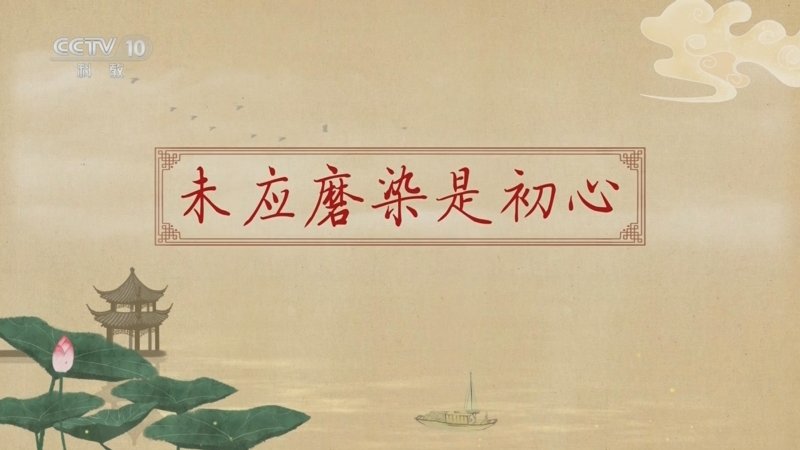 CCTV 10
科教
未应磨染是初心